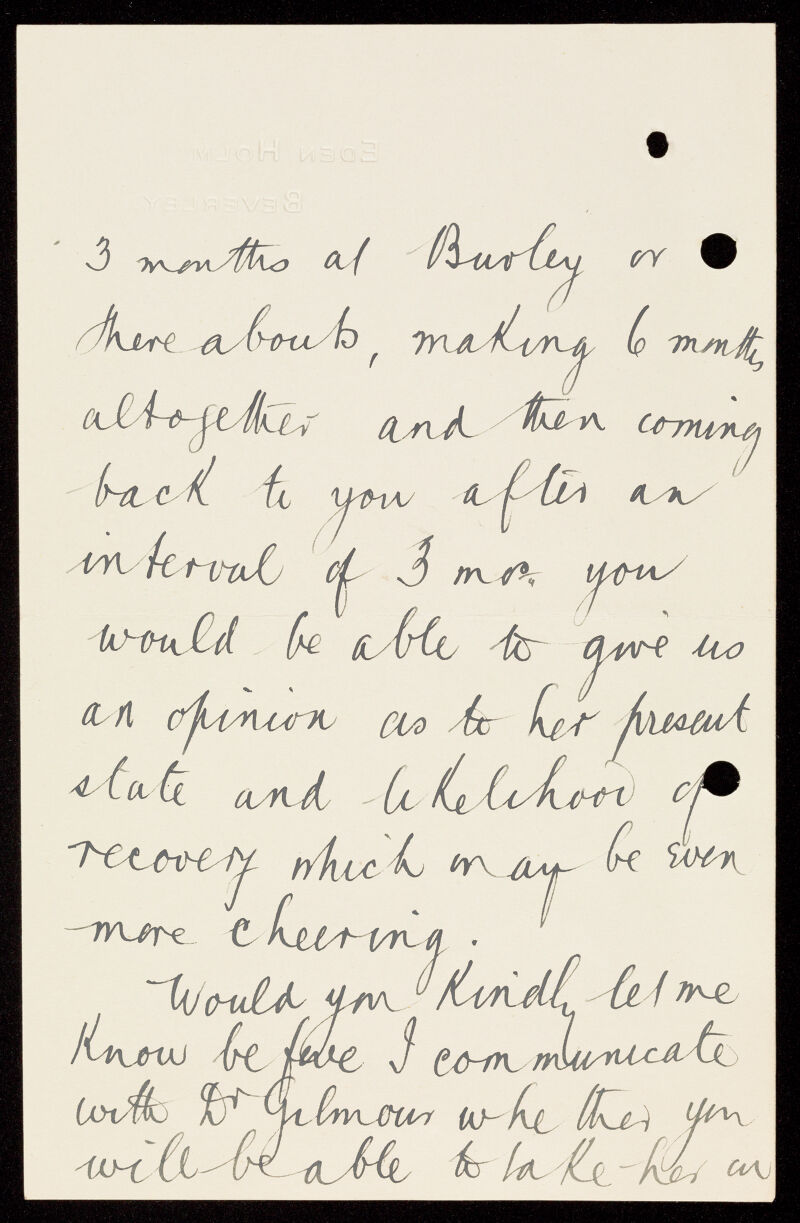 EDEN HOLM
BEVERLEY
3 months at Burley or
thereabouts, making 6 months
altogether and then coming
back to you after an
interval of 3 mos. you
would be able to give us
an opinion as to her present
state and likelihood of
recovery which may be even
more cheering.
Would you kindly let me
know before I communicate
with Dr Gilmour whether you
will be able to take her in